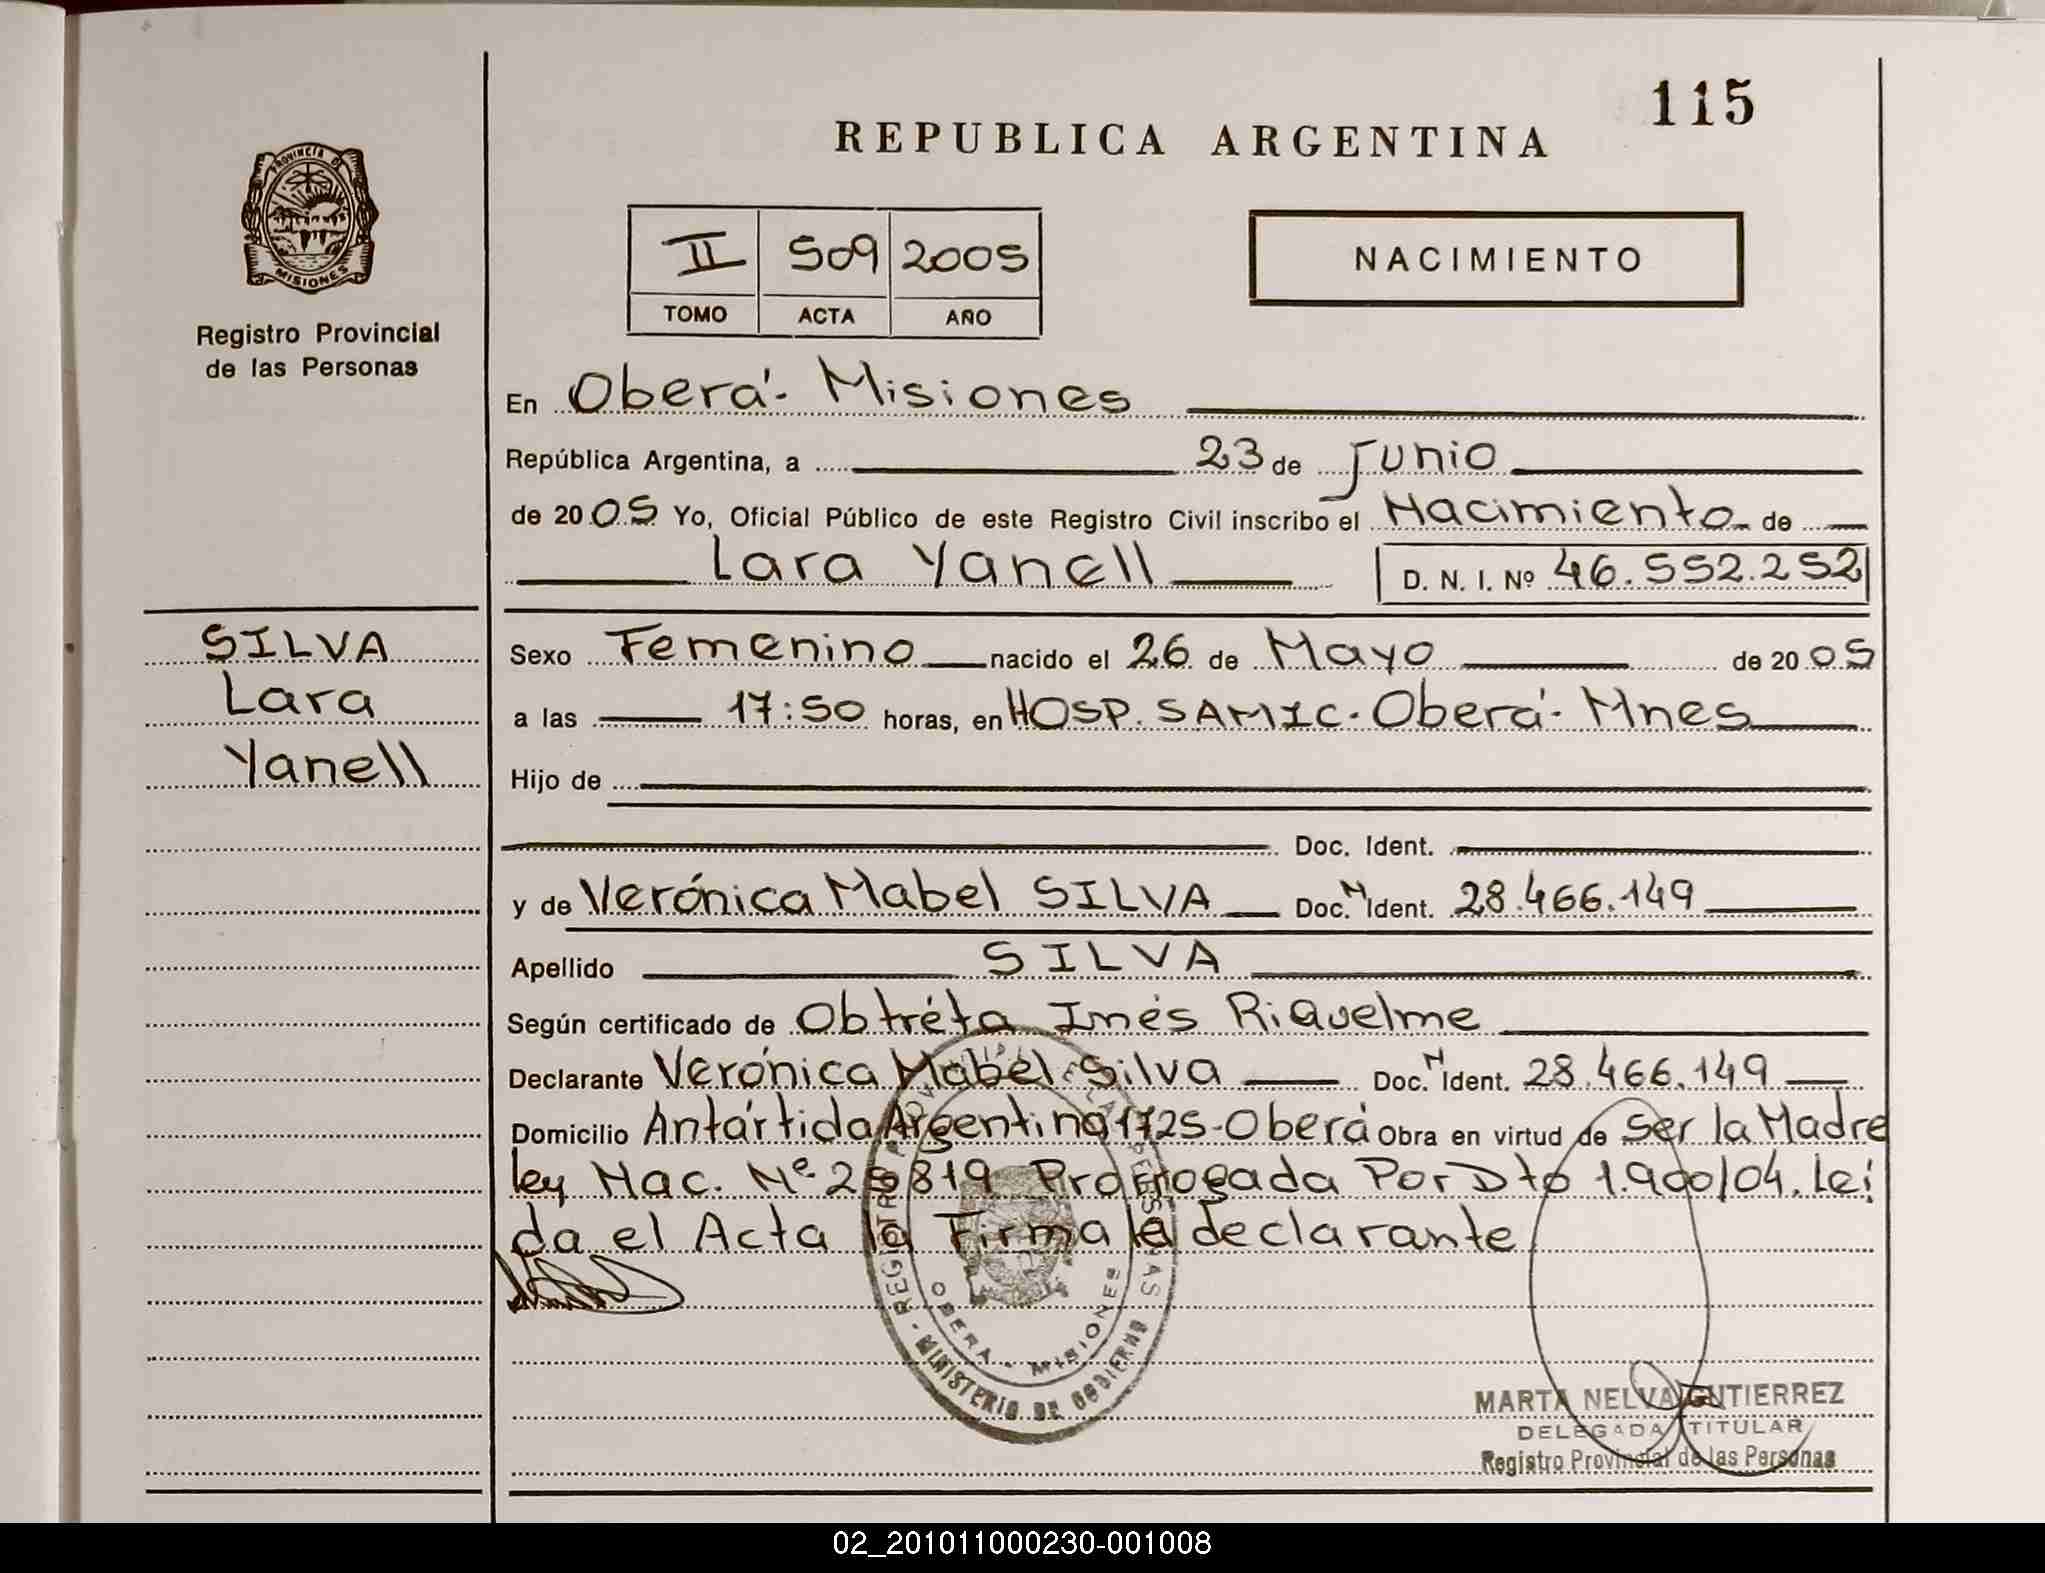 115
REPUBLICA ARGENTINA
PROVINCIA DE
MISIONES
Registro Provincial
de las Personas
II 509 2005
TOMO ACTA AÑO
NACIMIENTO
En Oberá - Misiones
República Argentina, a 23 de Junio
de 2005 Yo, Oficial Público de este Registro Civil inscribo el Nacimiento de
Lara Yanell D. N. I. Nº 46.552.252
SILVA
Lara
Yanell
Sexo Femenino nacido el 26 de Mayo de 2005
a las 17:50 horas, en HOSP. SAMIC - Oberá - Mnes
Hijo de
Doc. Ident.
y de Verónica Mabel SILVA Doc. N Ident. 28.466.149
Apellido SILVA
Según certificado de Obtréta Inés Riquelme
Declarante Verónica Mabel Silva Doc. N Ident. 28.466.149
Domicilio Antártida Argentina 1725 - Oberá Obra en virtud de Ser la Madre
ley Nac. Nº Prorrogada Por Dto 1.900/04. Lei
da el Acta la Firma la declarante
OBERA - MISIONES
MINISTERIO DE GOBIERNO
MARTA NELVA GUTIERREZ
DELEGADA TITULAR
Registro Provincial de las Personas
02_201011000230-001008